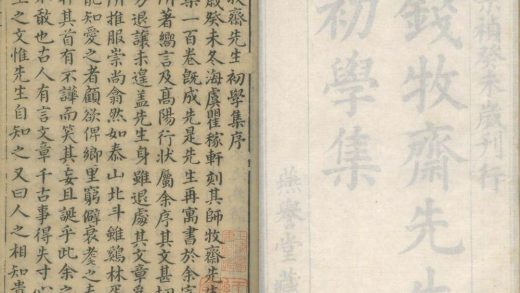 禎癸未歲刊行
錢牧齋先生
初學集
燕譽堂藏
牧齋先生初學集序
歲癸未冬海虞瞿稼軒刻其師牧齋先生
集一百卷既成先是先生再寓書於余
所著嚮言及高陽行狀屬余序其文甚切
方退讓未遑蓋先生身雖退處其文章
所推服崇尚翕然如泰山北斗雖鷄林
能知愛之者顧欲俾鄉里窮僻衰耄之
弁其首有不譁而笑其妄且誕乎此余之
敢也古人有言文章千古事得失寸心
生之文惟先生自知之又曰人之相知貴